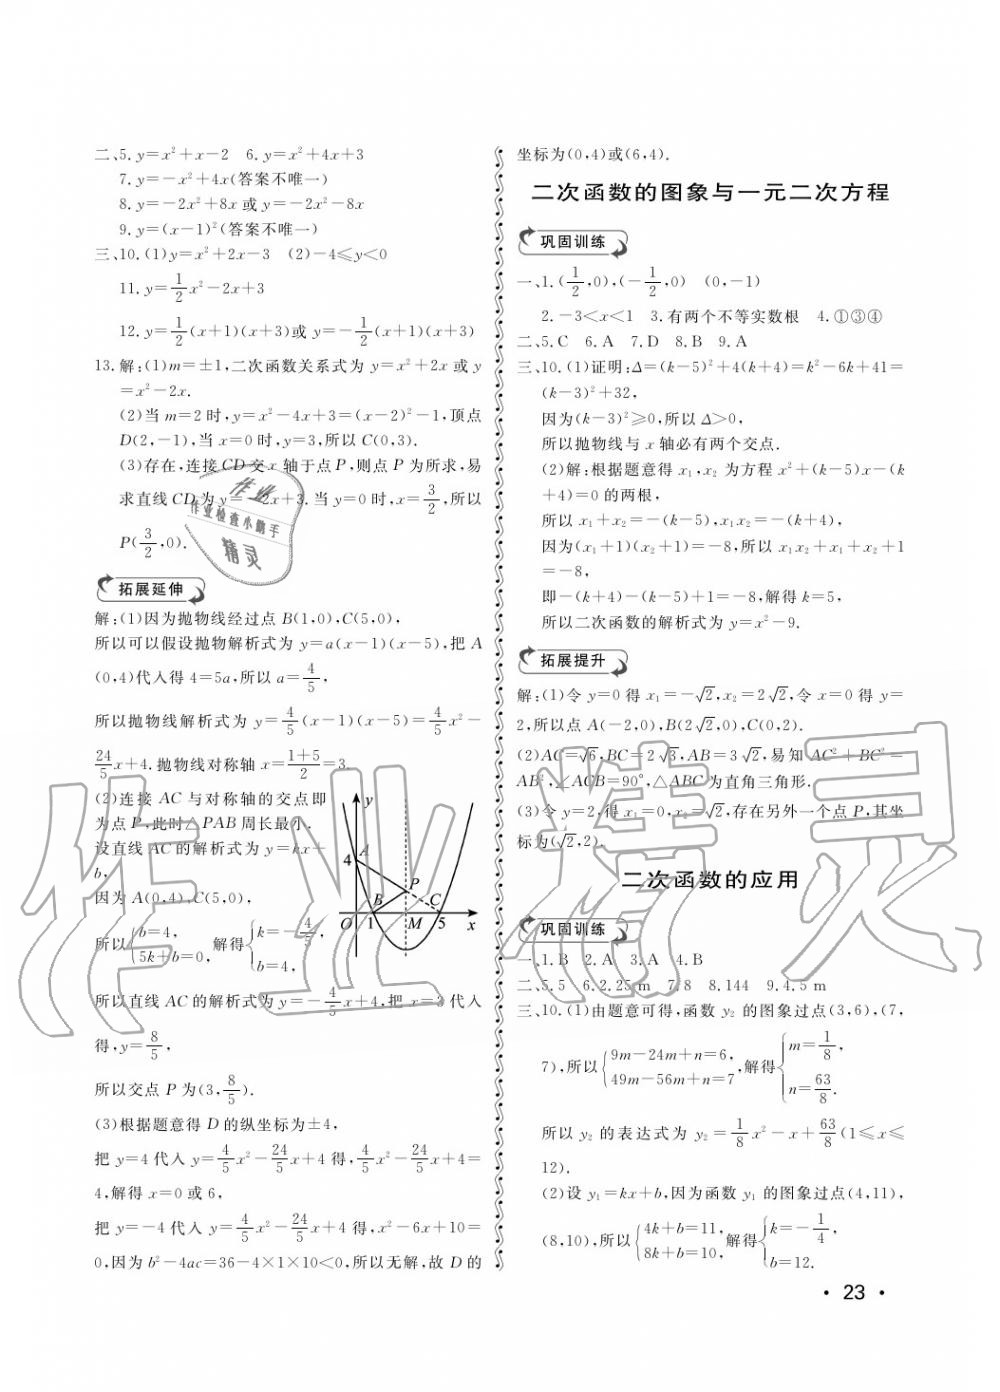 二、5. y=x²+x-2　6. y=x²+4x+3
7. y=-x²+4x(答案不唯一)
8. y=-2x²+8x 或 y=-2x²-8x
9. y=(x-1)²(答案不唯一)
三、10. (1)y=x²+2x-3　(2)-4≤y<0
11. y=1/2x²-2x+3
12. y=1/2(x+1)(x+3)或 y=-1/2(x+1)(x+3)
13. 解:(1)m=±1,二次函数关系式为 y=x²+2x 或 y
=x²-2x.
(2)当 m=2 时,y=x²-4x+3=(x-2)²-1,顶点
D(2,-1),当 x=0 时,y=3,所以 C(0,3).
(3)存在,连接 CD 交 x 轴于点 P,则点 P 为所求,易
求直线 CD 为 y=-2x+3. 当 y=0 时,x=3/2,所以
P(3/2,0).
拓展延伸
解:(1)因为抛物线经过点 B(1,0),C(5,0),
所以可以假设抛物解析式为 y=a(x-1)(x-5),把 A
(0,4)代入得 4=5a,所以 a=4/5,
所以抛物线解析式为 y=4/5(x-1)(x-5)=4/5x²-
24/5x+4. 抛物线对称轴 x=(1+5)/2=3.
(2)连接 AC 与对称轴的交点即
为点 P,此时△PAB 周长最小.
设直线 AC 的解析式为 y=kx+
b,
因为 A(0,4),C(5,0),
所以{b=4, 5k+b=0, 解得{k=-4/5, b=4,
y
4
A
P
B
C
O 1 M 5 x
所以直线 AC 的解析式为 y=-4/5x+4,把 x=3 代入
得,y=8/5,
所以交点 P 为(3,8/5).
(3)根据题意得 D 的纵坐标为±4,
把 y=4 代入 y=4/5x²-24/5x+4 得,4/5x²-24/5x+4=
4,解得 x=0 或 6,
把 y=-4 代入 y=4/5x²-24/5x+4 得,x²-6x+10=
0,因为 b²-4ac=36-4×1×10<0,所以无解,故 D 的
坐标为(0,4)或(6,4).
二次函数的图象与一元二次方程
巩固训练
一、1. (1/2,0),(-1/2,0)　(0,-1)
2. -3<x<1　3. 有两个不等实数根　4. ①③④
二、5. C　6. A　7. D　8. B　9. A
三、10. (1)证明:Δ=(k-5)²+4(k+4)=k²-6k+41=
(k-3)²+32,
因为(k-3)²≥0,所以 Δ>0,
所以抛物线与 x 轴必有两个交点.
(2)解:根据题意得 x₁,x₂ 为方程 x²+(k-5)x-(k
+4)=0 的两根,
所以 x₁+x₂=-(k-5),x₁x₂=-(k+4),
因为(x₁+1)(x₂+1)=-8,所以 x₁x₂+x₁+x₂+1
=-8,
即-(k+4)-(k-5)+1=-8,解得 k=5,
所以二次函数的解析式为 y=x²-9.
拓展提升
解:(1)令 y=0 得 x₁=-√2,x₂=2√2,令 x=0 得 y=
2,所以点 A(-2,0),B(2√2,0),C(0,2).
(2)AC=√6,BC=2√3,AB=3√2,易知 AC²+BC²=
AB²,∠ACB=90°,△ABC 为直角三角形.
(3)令 y=2,得 x₁=0,x₂=√2,存在另外一个点 P,其坐
标为(√2,2).
二次函数的应用
巩固训练
一、1. B　2. A　3. A　4. B
二、5. 5　6. 2.25 m　7. 8　8. 144　9. 4.5 m
三、10. (1)由题意可得,函数 y₂ 的图象过点(3,6),(7,
7),所以{9m-24m+n=6, 49m-56m+n=7,解得{m=1/8, n=63/8.
所以 y₂ 的表达式为 y₂=1/8x²-x+63/8(1≤x≤
12).
(2)设 y₁=kx+b,因为函数 y₁ 的图象过点(4,11),
(8,10),所以{4k+b=11, 8k+b=10,解得{k=-1/4, b=12.
· 23 ·
作业
作业检查小助手
精灵
作业精灵